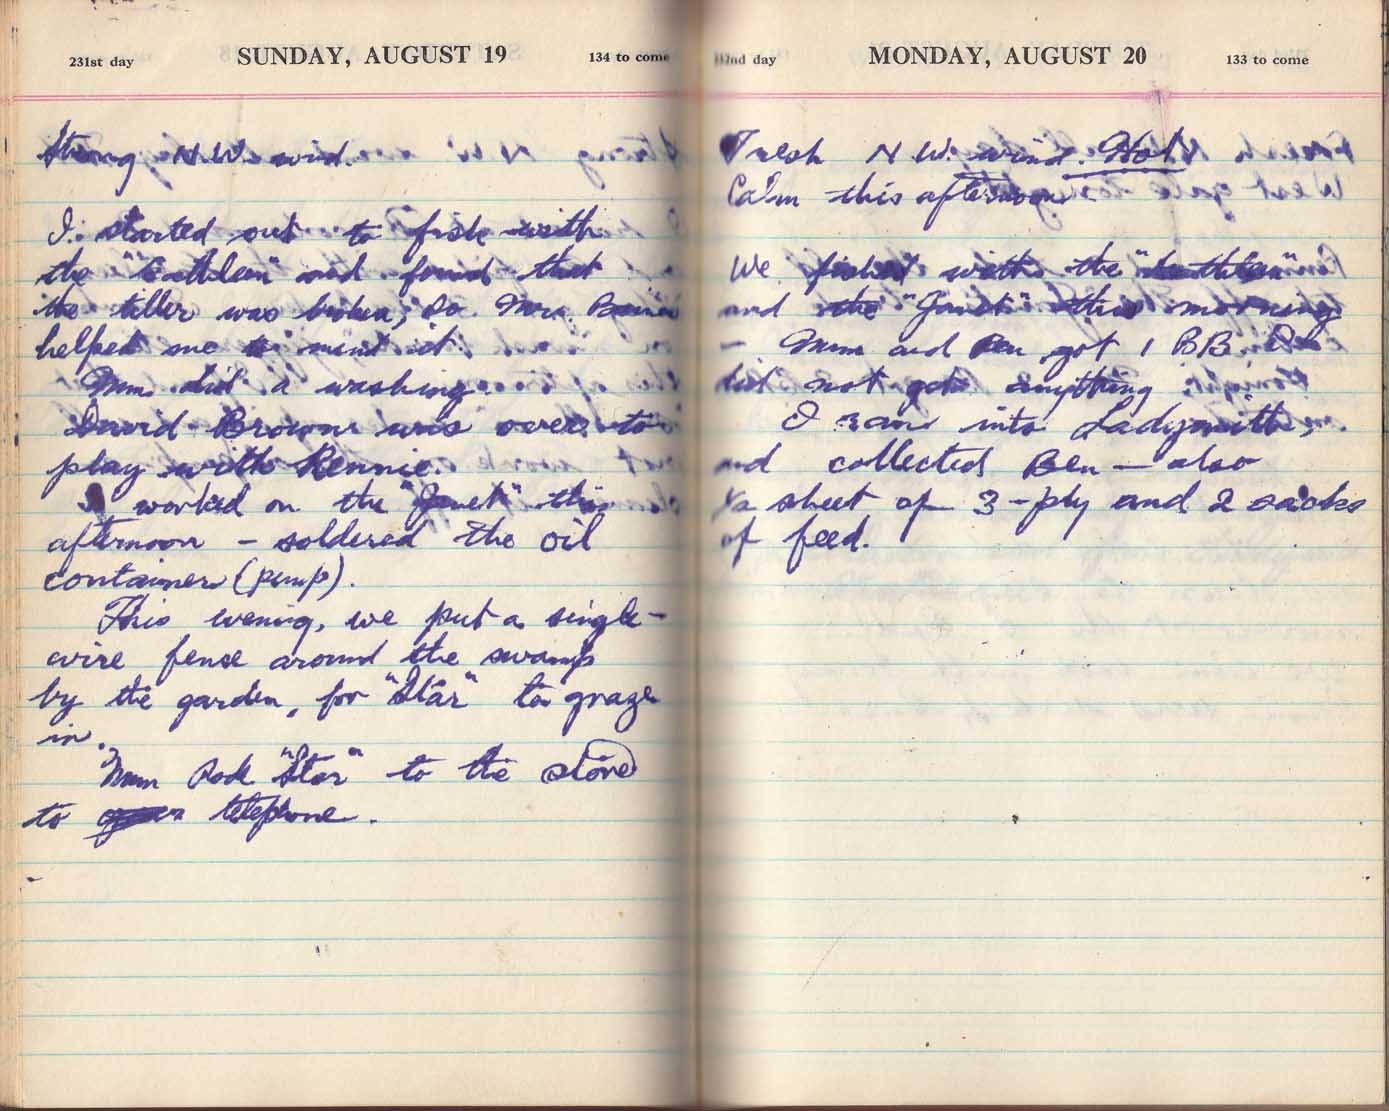 231st day SUNDAY, AUGUST 19 134 to come
Strong N.W. wind.
I started out to fish with
the "Cathleen" and found that
the tiller was broken, so Mrs.
helped me to mend it.
Mum did a washing.
David Browne was over to
play with Rennie.
I worked on the "Janet" this
afternoon - soldered the oil
container (pump).
This evening, we put a single-
wire fense around the swamp
by the garden, for "Star" to graze
in.
Mum Rode "Star" to the store
to telephone.
232nd day MONDAY, AUGUST 20 133 to come
Fresh N.W. wind. Hot
Calm this afternoon
We fished with the "Cathleen"
and the "Janet" this morning
- Mum and Ben got 1 BB I
did not get anything.
I ran into Ladysmith,
and collected Ben - also
a sheet of 3-ply and 2 sacks
of feed.